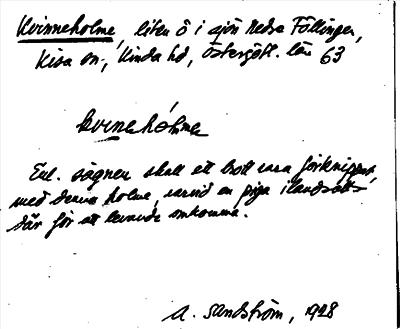 Kvinneholme, liten ö i sjön Nedre Föllingen,
Kisa sn., Kinda hd, Östergötl. län 63
kvineholme
Enl. sägnen skall ett brott vara förknippat
med denna holme, varvid en piga ilandsatts
där för att levande omkomma.
A. Sandström, 1928